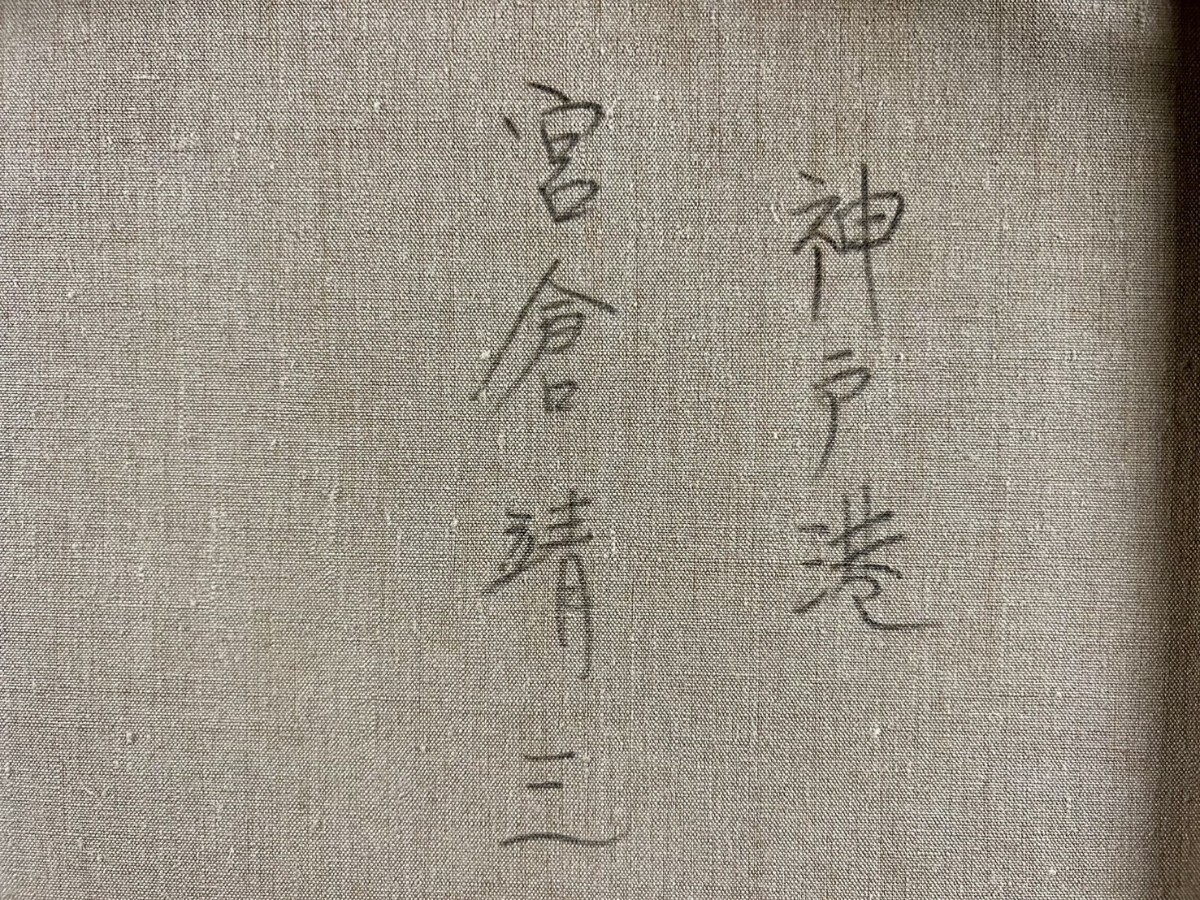 神戸港
宮倉靖三